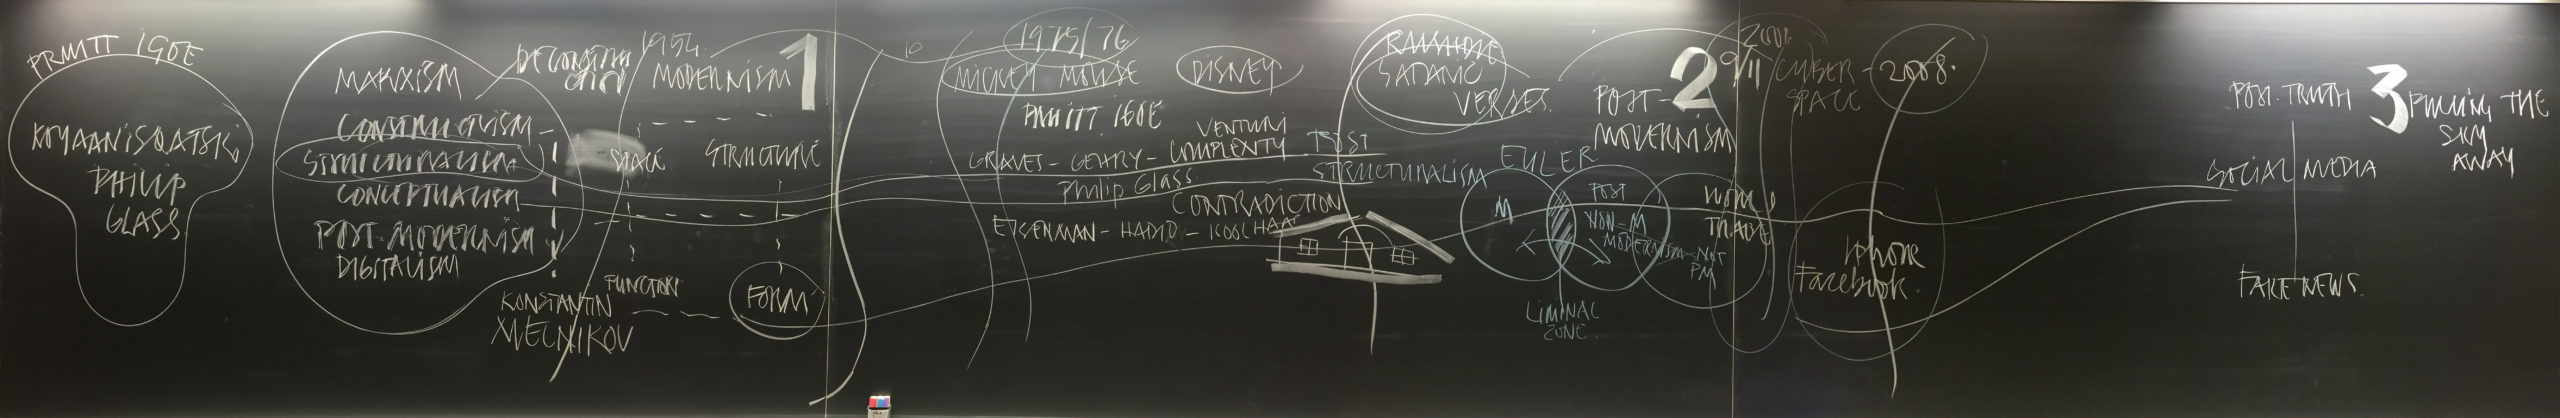 PRUITT IGOE
KOYAANISQATSI,
PHILIP
GLASS
MARXISM
CONSTRUCTIVISM
STRUCTURALISM
CONCEPTUALISM
POST-MODERNISM
DIGITALISM
KONSTANTIN
MELNIKOV
1954.
MODERNISM
1
SPACE
STRUCTURE
FUNCTION
FORM
1975/76
MICKEY MOUSE
DISNEY
PRUITT. IGOE
VENTURI
GRAVES - GEHRY - COMPLEXITY
Philip Glass
CONTRADICTION
EISENMAN - HADID - KOOLHAAS
POST
STRUCTURALISM
RUSHDIE
SATANIC
VERSES.
POST-
MODERNISM
2
EULER
M
POST
NON-M
MODERNISM-NOT
PM
LIMINAL
ZONE.
2001
9/11
WORLD
TRADE
CYBER-
SPACE
2008.
Iphone
Facebook.
POST-TRUTH
SOCIAL MEDIA
FAKE NEWS.
3
PULLING THE
SKY
AWAY